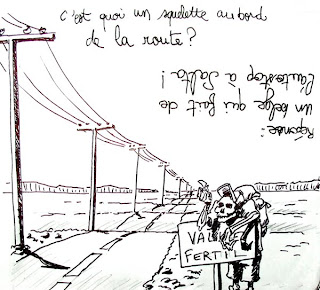 C'est quoi un squelette au bord
de la route?
Réponse:
un belge qui fait de
l'autostop à Salta!
VAL
FERTIL